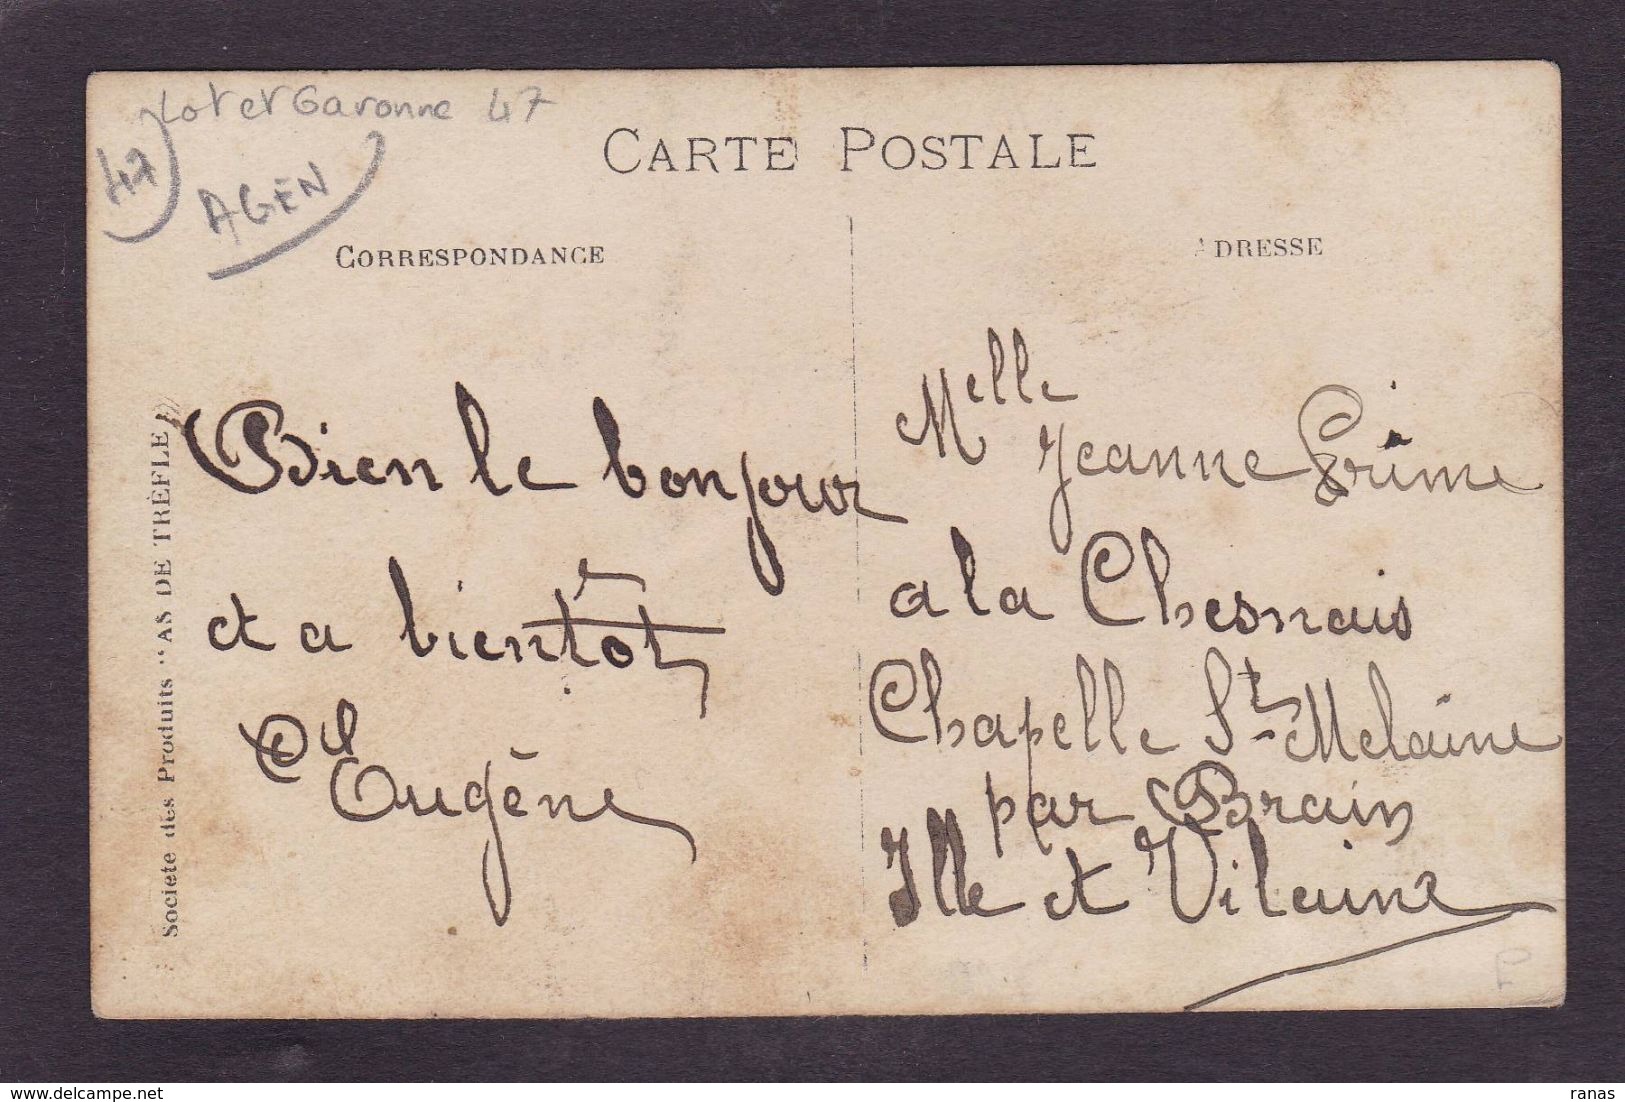 Lot et Garonne 47
47
AGEN
CARTE POSTALE
CORRESPONDANCE
ADRESSE
Société des Produits "AS DE TRÈFLE"
Bien le bonjour
et a bientôt
Eugène
Melle
Jeanne
a la Chesnais
Chapelle St Melaine
par Brain
Ille et Vilaine
P
ranas